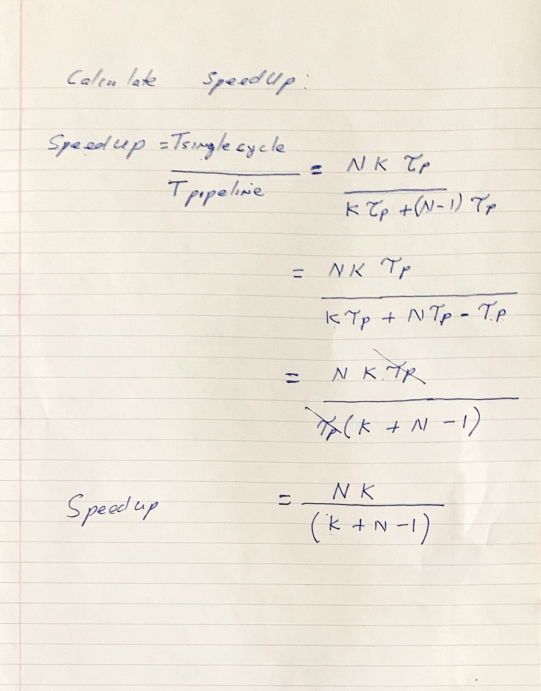 Calculate SpeedUp:
SpeedUp = Tsinglecycle / Tpipeline = N K τp / K τp + (N-1) τp
= N K τp / K τp + N τp - τp
= N K τp / τp (K + N - 1)
Speedup = N K / (K + N - 1)